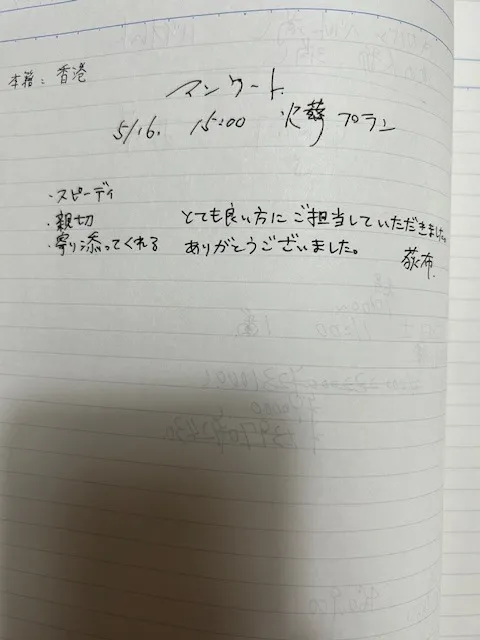 本籍：香港
アンケート
5/16. 15:00 火葬プラン
・スピーディ
・親切 とても良い方にご担当していただきました。
・寄り添ってくれる ありがとうございました。
荻布